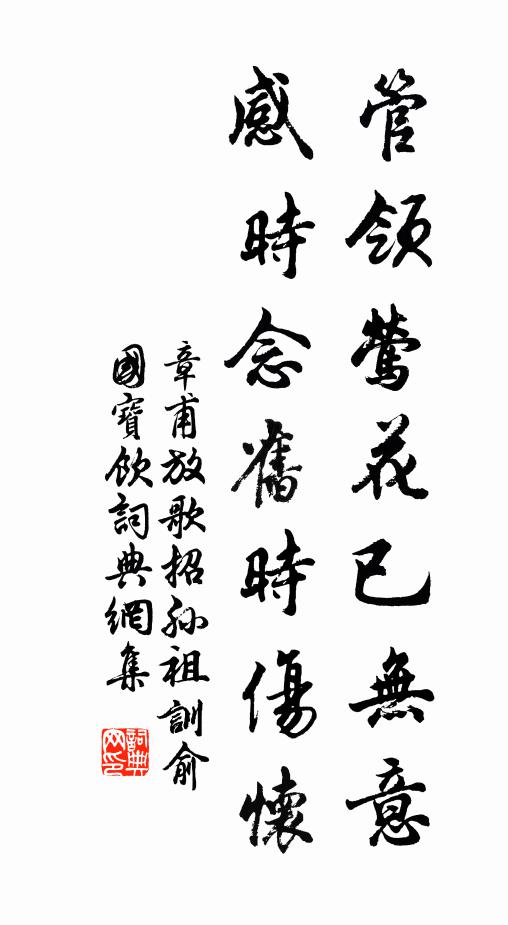 管領鶯花已無意
感時念舊時傷懷
章甫放歌招孫祖訓俞
國寶飲詞典網集
詞典
网印